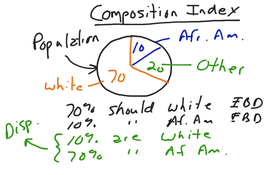 Composition Index
Population
10
Afr. Am.
20
Other
70
white
70% should white EBD
10% " Af. Am EBD
Disp.
10% are white
70% " Af Am.